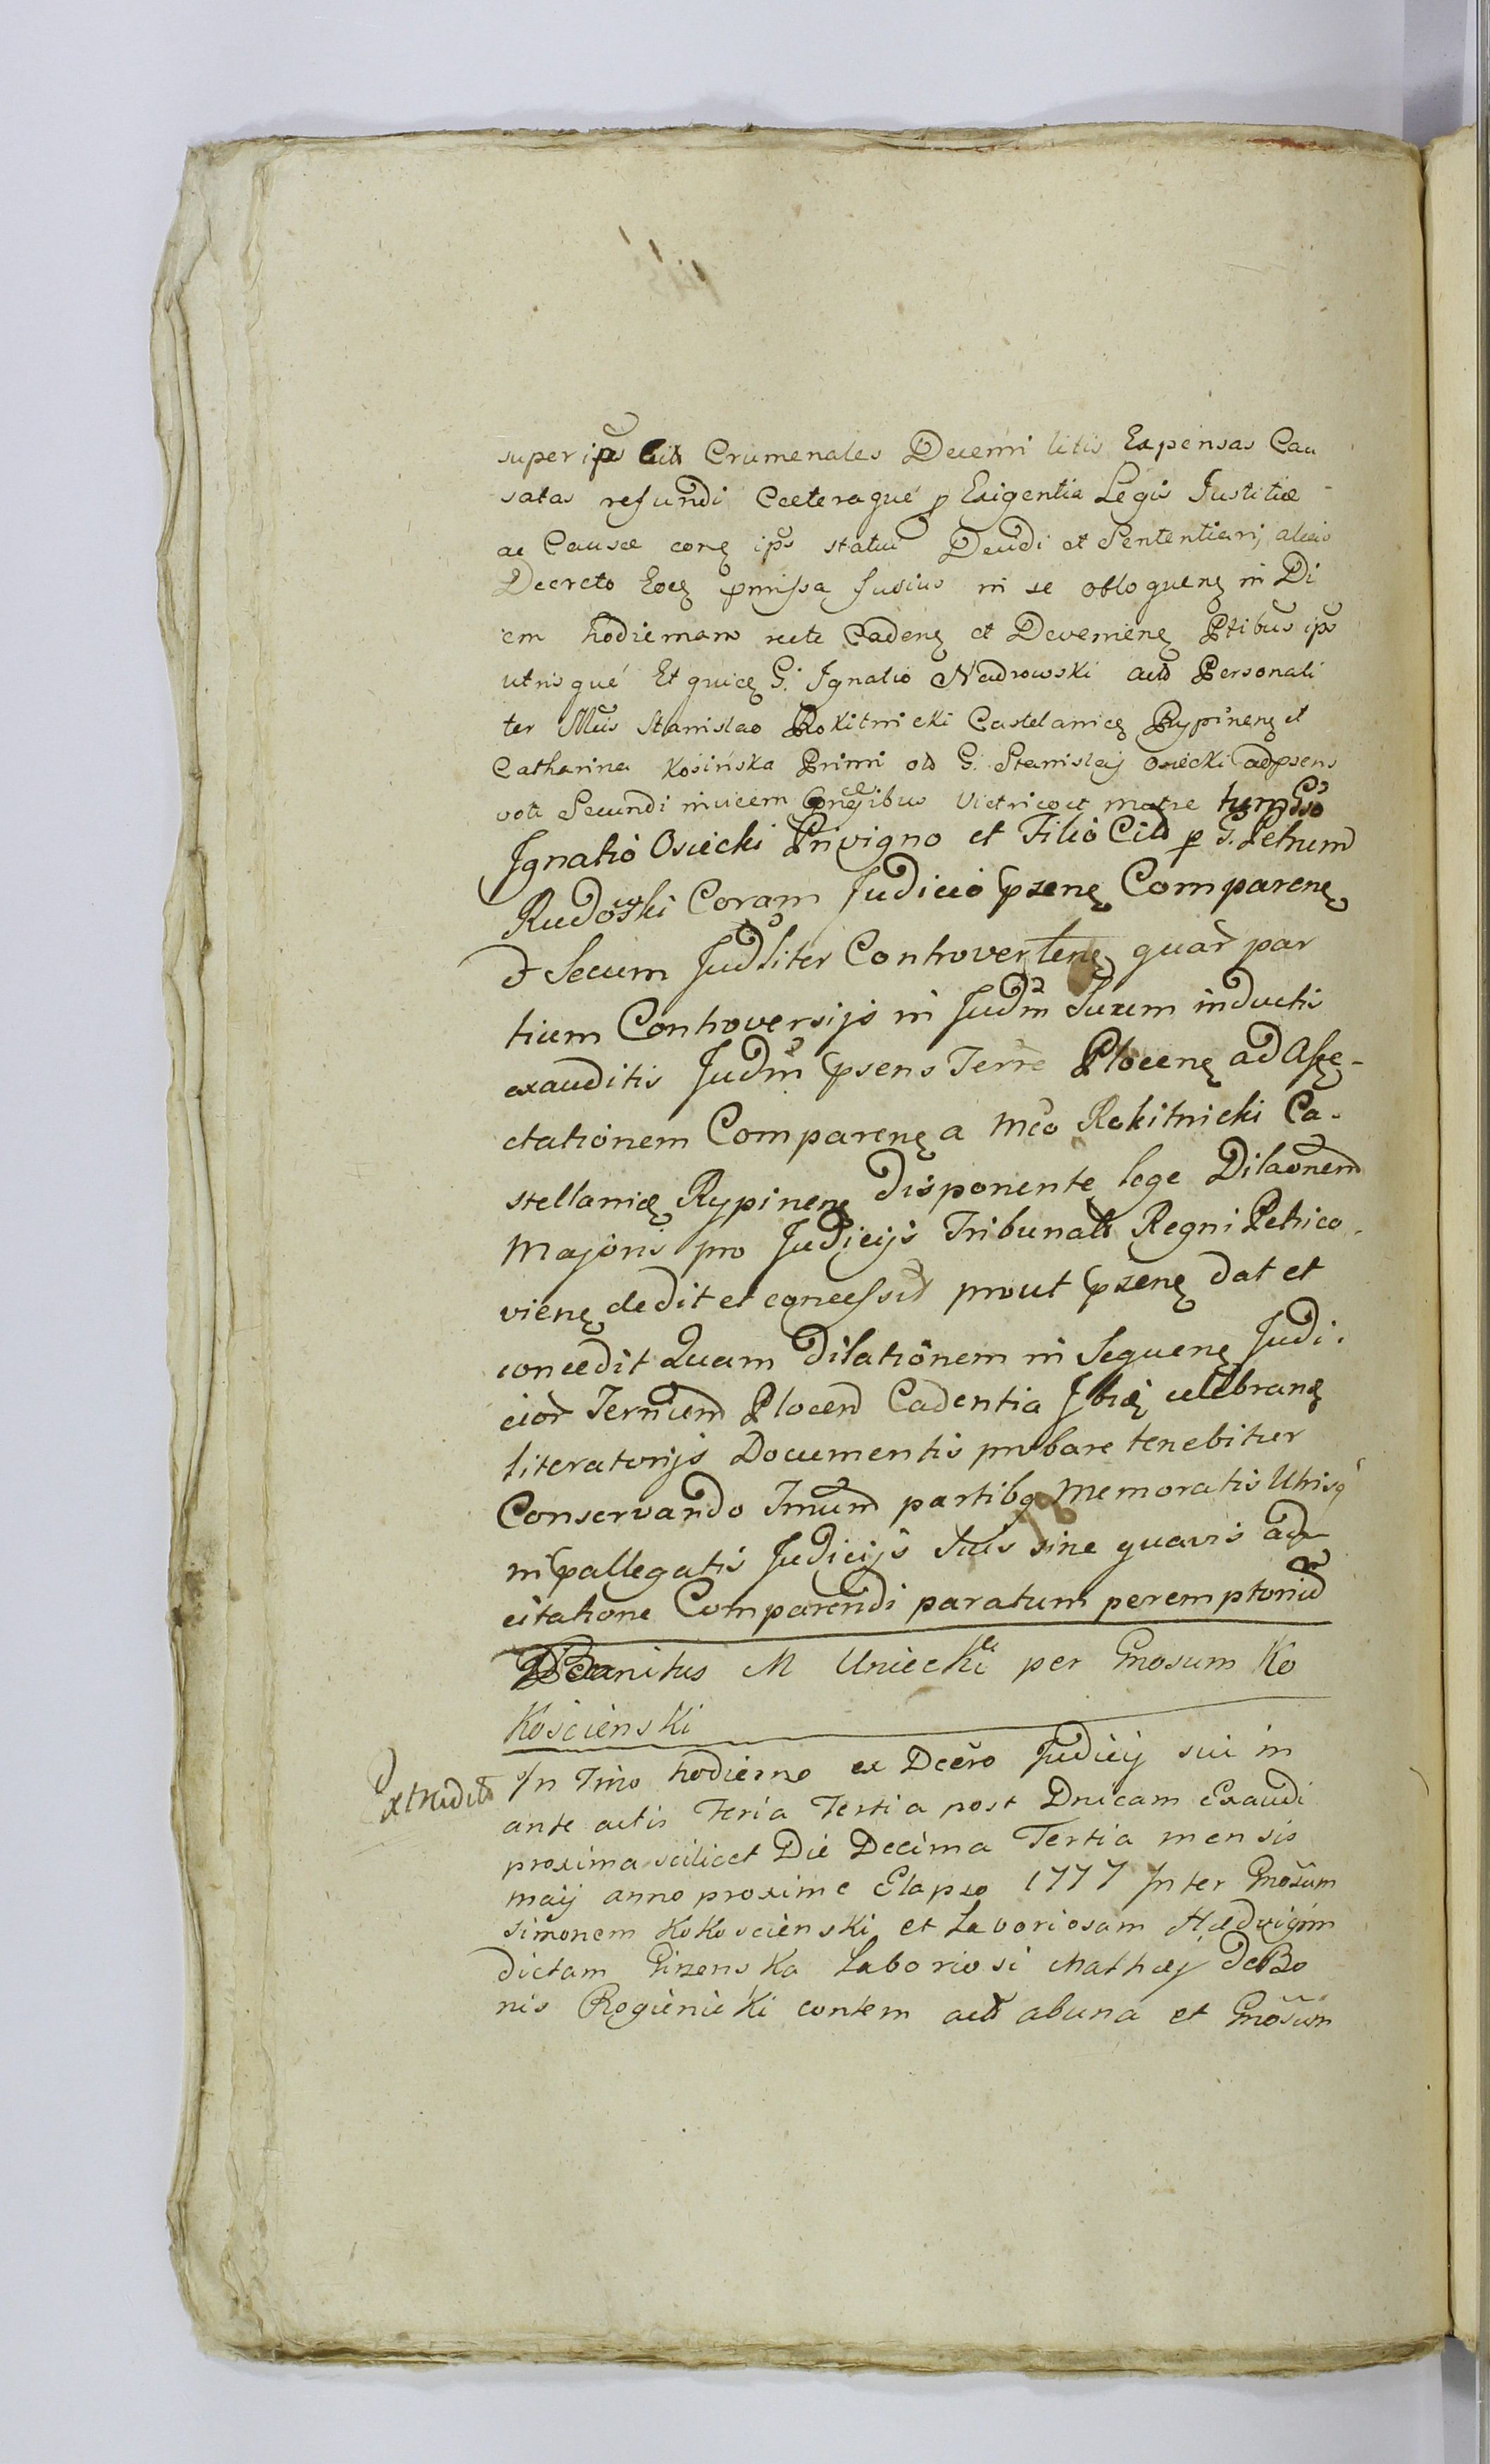 super ips Citt Criminales Decerni litis Expensas Cau
satas refundi Caeteraque p Exigentia Legis Justitiae
ac Causae conę ips statui Deudi et Sententiari, alias
Decreto Eocę pmissa fusius in se obloquenę in Di
em hodiernam recte Cadenę et Devenienę Ptibus ips
utrisqué Et quicę G. Ignatio Nadrowski act Personali
ter Mcis Stanislao Rokitnicki Castelanicę Rypinenę et
Catharina Kosińska Primi olt G. Stanislaj Osiecki ad psens
voti Secundi invicem Conjgibus Vietrico et matre
Ignatio Osiecki Privigno et Filio Citt p G. Petrum
Rudowski Coram Judicio psenę Comparenę
et Secum Judliter Controvertenę quar par
tium Controversijs in Judm Suum inductis
exauditis Judm psens Terre Plocenę ad Affę-
ctationem Comparenę a Mco Rokitnicki Ca-
stellanicę Rypinenę disponente lege Dilaonem
Majoris pro Judicijs Tribunalt Regni Petrico-
vienę dedit et concessit prout psenę dat et
concedit Quam Dilationem in Sequenę Judi-
cior Terrium Plocen Cadentia Ibię celebranę
literatorijs Documentis probare tenebitur
Conservando Tmum partibq memoratis Utrisq
in pallegatis Judicijs Suis sine quavis ad
citatione Comparendi paratum peremptorium
M Uniecki per Gnosum Ko
Kosciènski
Extradit
In Tmo hodierno ex Dcero Judicij sui in
ante actis Feria Tertia post Dnicam Exaudi
proxima scilicet Die Decima Tertia mensis
maij anno proxime Elapso 1777 Inter Gnosum
Simonem Kokoscienski et Laboriosam Hedvigim
dictam Laboriosi Mathaej De Bo
nis Rogieniçki contem act abuna et Gnosum